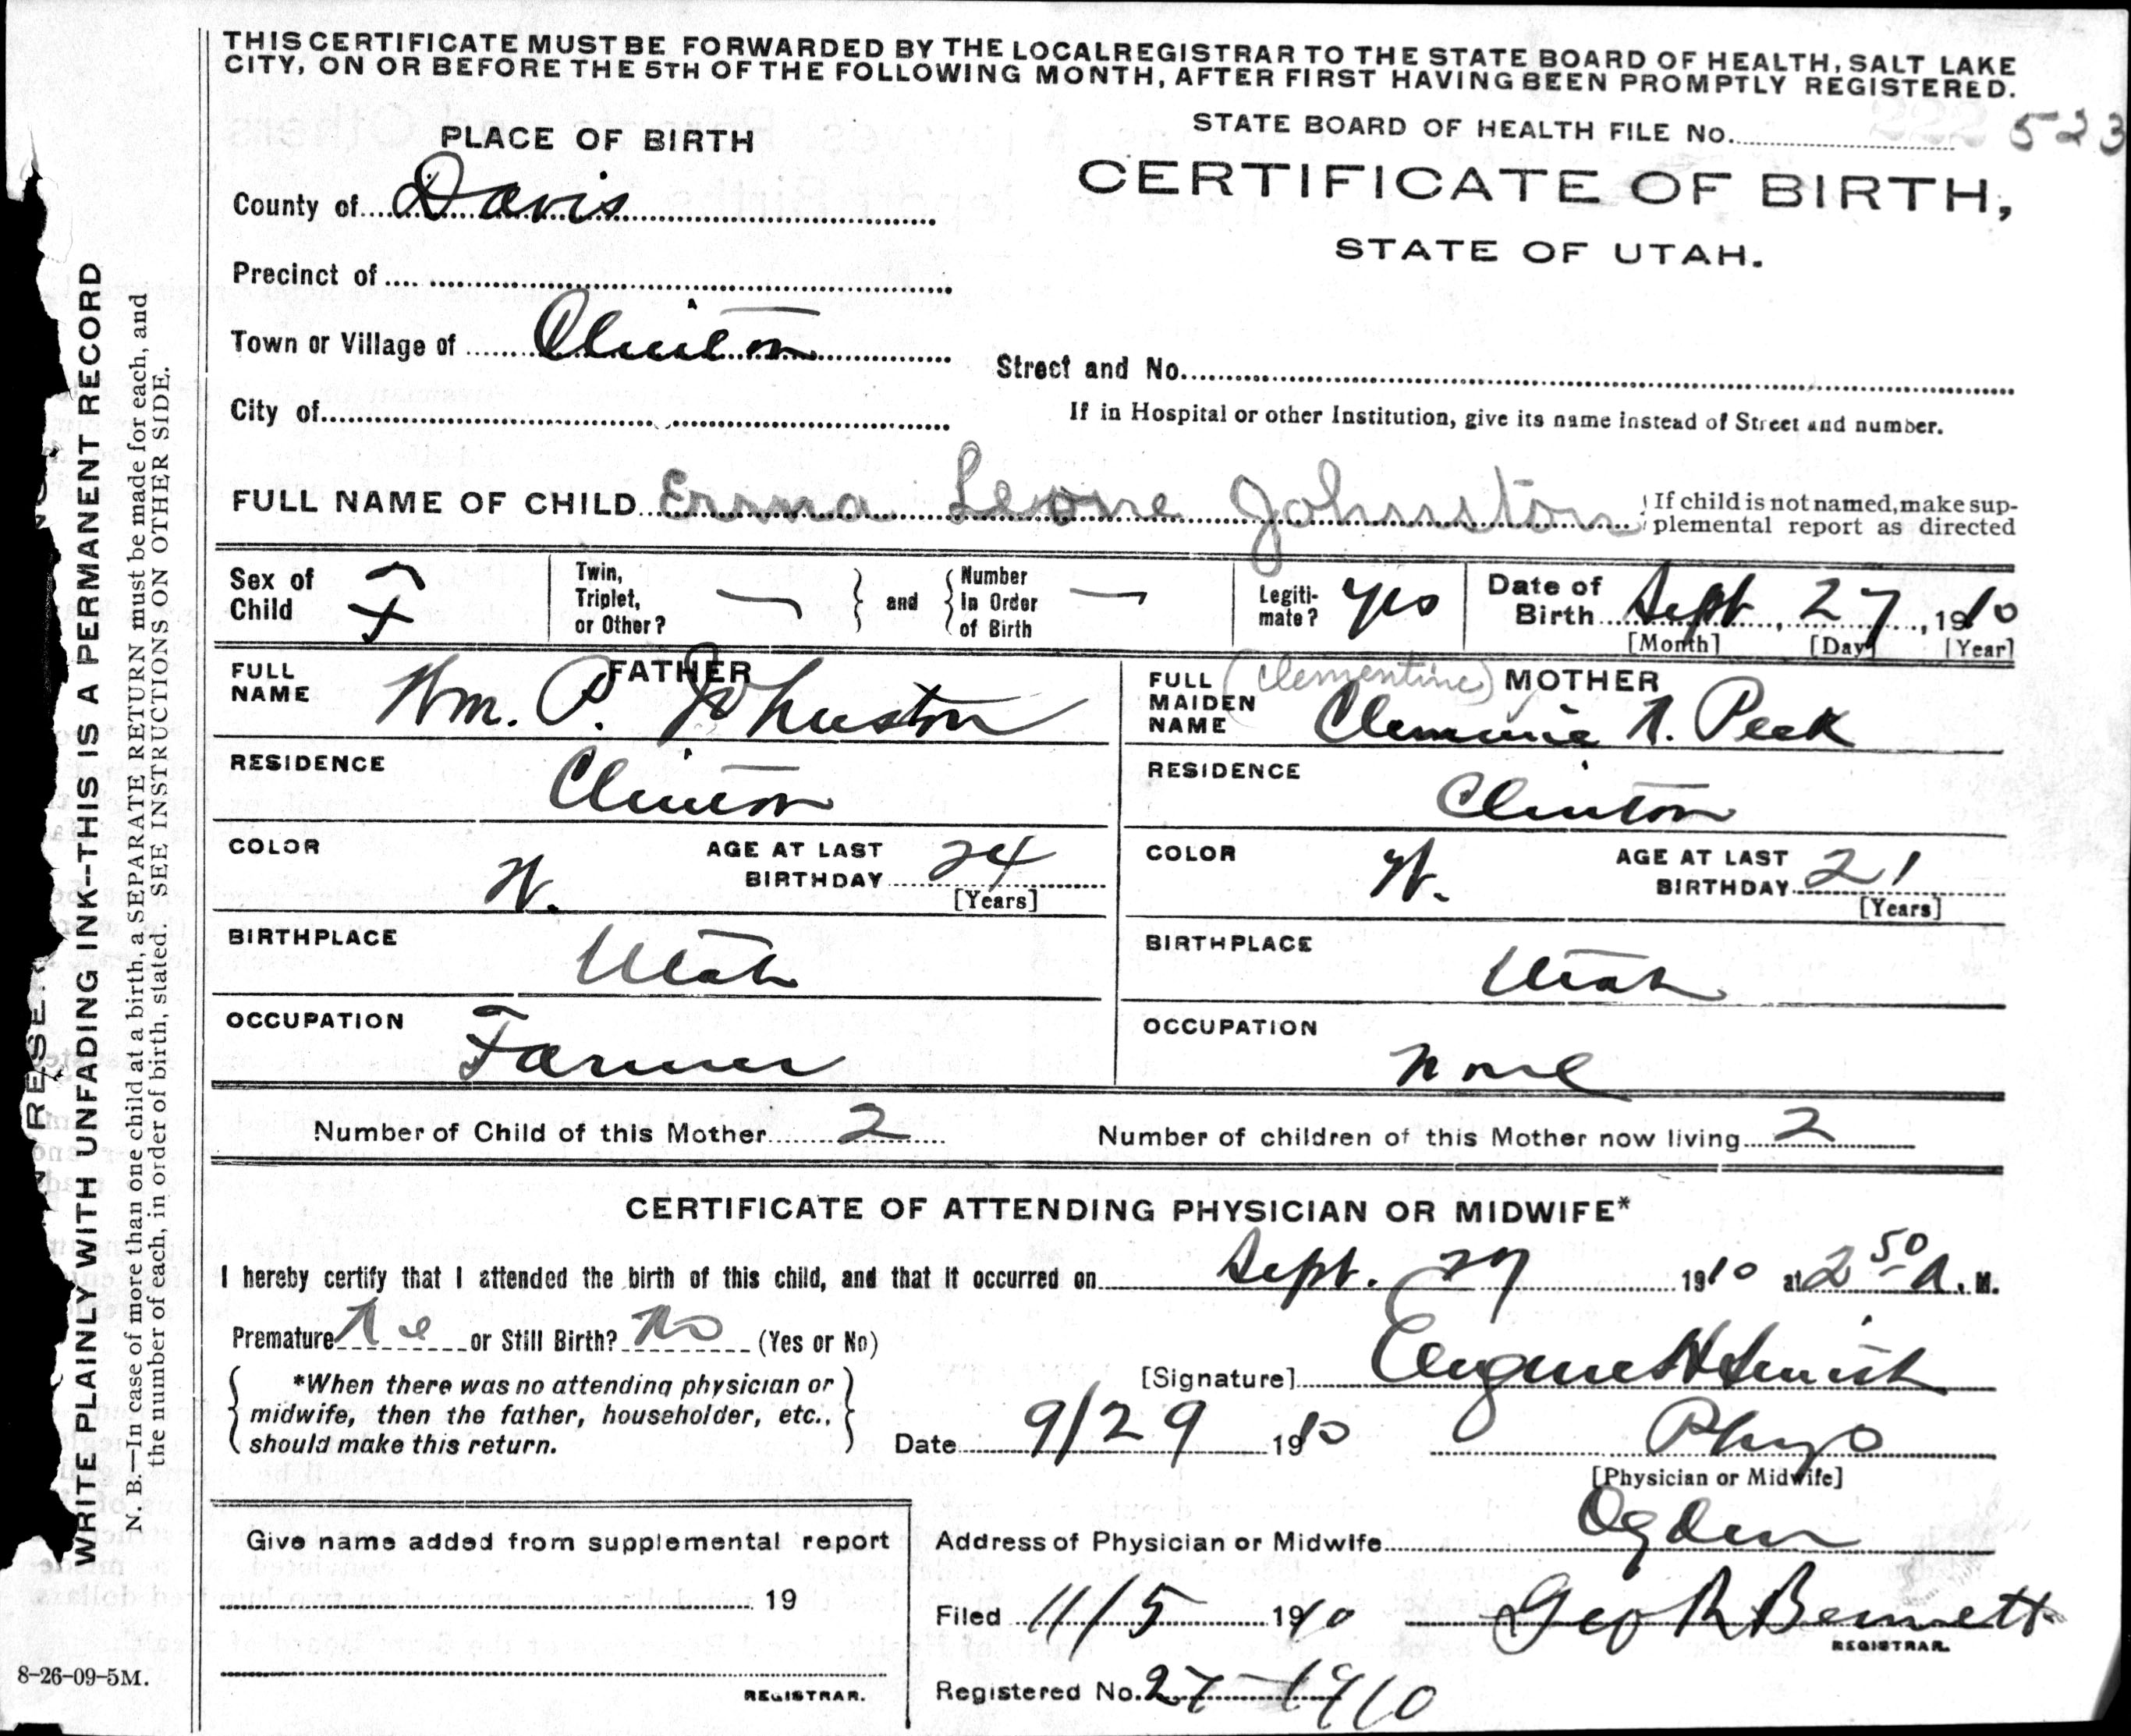 THIS CERTIFICATE MUST BE FORWARDED BY THE LOCAL REGISTRAR TO THE STATE BOARD OF HEALTH, SALT LAKE
CITY, ON OR BEFORE THE 5TH OF THE FOLLOWING MONTH, AFTER FIRST HAVING BEEN PROMPTLY REGISTERED.
STATE BOARD OF HEALTH FILE No. 222 523
PLACE OF BIRTH
CERTIFICATE OF BIRTH,
STATE OF UTAH.
County of Davis
Precinct of
Town or Village of Clinton
Street and No.
City of
If in Hospital or other Institution, give its name instead of Street and number.
FULL NAME OF CHILD Erma Leone Johnston
If child is not named, make sup-
plemental report as directed
Sex of Child F
Twin, Triplet, or Other? —
and
Number in Order of Birth —
Legiti-mate? yes
Date of Birth Sept, 27, 1910
[Month] [Day] [Year]
FATHER
FULL NAME Wm. P. Johnston
RESIDENCE Clinton
COLOR W. AGE AT LAST BIRTHDAY 24
[Years]
BIRTHPLACE Utah
OCCUPATION Farmer
MOTHER
FULL MAIDEN NAME (Clementine) Clemmie N. Peek
RESIDENCE Clinton
COLOR W. AGE AT LAST BIRTHDAY 21
[Years]
BIRTHPLACE Utah
OCCUPATION None
Number of Child of this Mother 2 Number of children of this Mother now living 2
CERTIFICATE OF ATTENDING PHYSICIAN OR MIDWIFE*
I hereby certify that I attended the birth of this child, and that it occurred on Sept. 27 1910 at 2 50 A. M.
Premature No or Still Birth? No (Yes or No)
*When there was no attending physician or
midwife, then the father, householder, etc.,
should make this return.
[Signature] Eugene H Smith
Date 9/29 1910 Phys
[Physician or Midwife]
Give name added from supplemental report
19
REGISTRAR.
Address of Physician or Midwife Ogden
Filed 11/5 1910 Geo R Bennett
REGISTRAR.
Registered No. 27-1910
8-26-09-5M.
WRITE PLAINLY WITH UNFADING INK--THIS IS A PERMANENT RECORD
N. B.—In case of more than one child at a birth, a SEPARATE RETURN must be made for each, and
the number of each, in order of birth, stated. SEE INSTRUCTIONS ON OTHER SIDE.